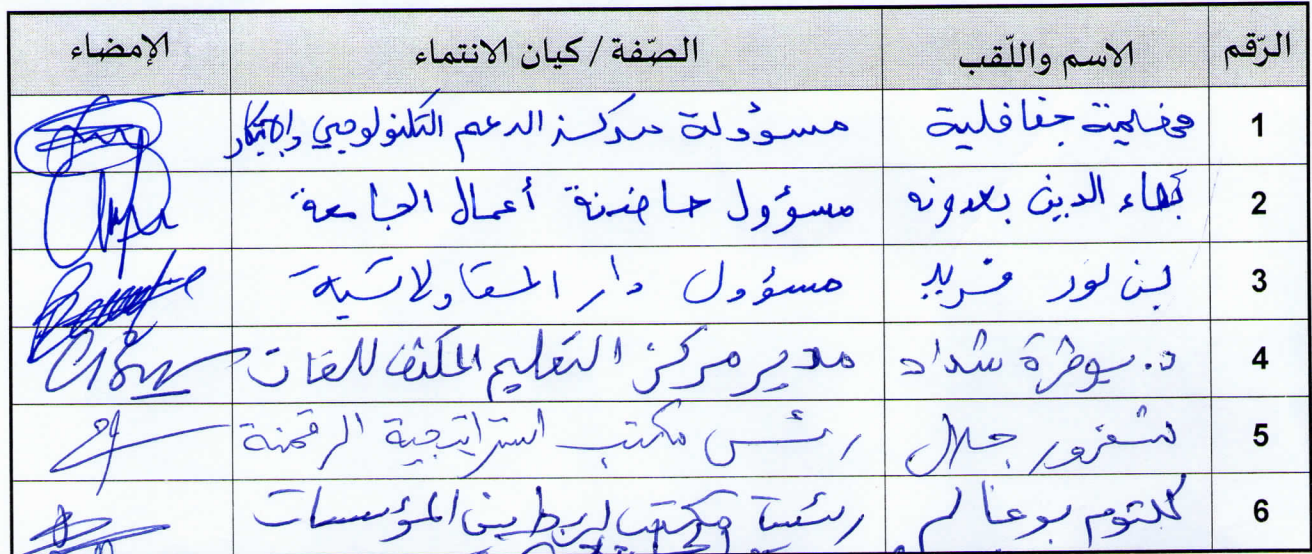 الرّقم الاسم واللّقب الصّفة / كيان الانتماء الإمضاء
1 جفافلية مسؤولة مركز الدعم التكنولوجي والابتكار
2 بهاء الدين مسؤول حاضنة أعمال الجامعة
3 بن لور فريد مسؤول دار المقاولاتية
4 د. شداد مدير مركز التعليم المكثف للغات
5 جلال رئيس مكتب استراتيجية الرقمنة
6 كلتوم بوغالم رئيسة مكتب الربط بين المؤسسات